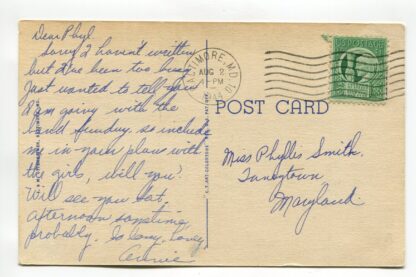 Dear Phyl
Sorry I haven't written
but I've been too busy.
Just wanted to tell you
I am going with the
Sunday, so include
me in your plans with
the girls, will you?
Will see you Sat.
afternoon sometime
probably. So long, Honey
Annie
BALTIMORE, MD.
AUG 2
PM
1944
POST CARD
Miss Phyllis Smith.
Taneytown
Maryland.